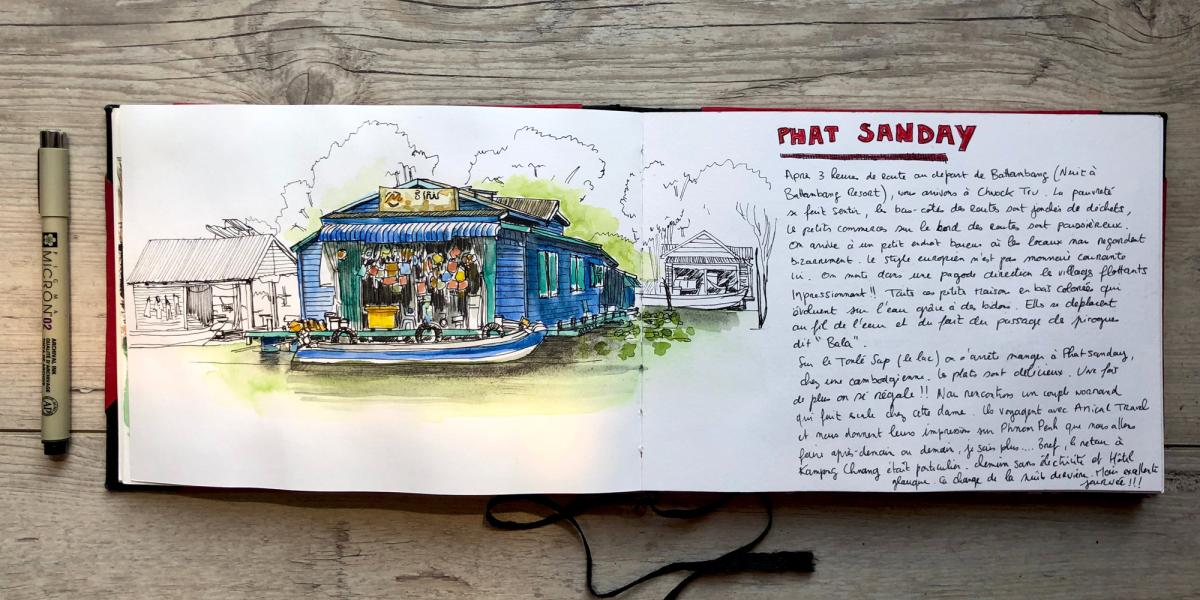 SIGMA
MICRON 02
ARCHIVAL INK
PHAT SANDAY
Après 3 heures de route au départ de Battambang (Nuit à
Battambang Resort), nous arrivons à Chnock Tru. La pauvreté
se fait sentir, les bas-côtés des routes sont jonchés de déchets,
Le petits commerces sur le bord des routes sont poussiéreux.
On arrive à un petit endroit baraeux où les locaux nous regardent
bizarrement. Le style européen n'est pas monnaie courante
ici. On monte dans une pirogue direction le village flottants
Impressionnant!! Toutes ces petites Maison en bois colorées qui
évoluent sur l'eau grâce à des bidons. Elles se déplacent
au fil de l'eau et du fait du passage de pirogue
dit "Bala".
Sur le Tonlé Sap (le lac) on s'arrête manger à Phat sanday,
chez une cambodgienne. Les plats sont délicieux. Une fois
de plus on se régale!! Nous rencontrons un couple normand
qui fait escale chez cette dame. Ils voyagent avec Amical Travel
et nous donnent leurs impressions sur Phnom Penh que nous allons
faire après-demain ou demain, je sais plus.... Bref, le retour à
Kampong Chnang était particulier. Chemin sans électricité et Hôtel
glauque. Ça change de la nuit dernière. Mais excellente
journée!!!